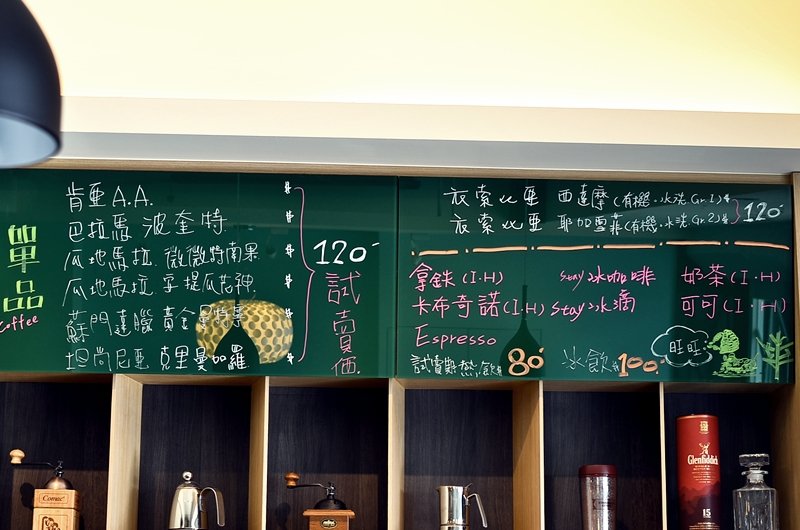 單品
Coffee
肯亞 A.A.
巴拉馬 波奎特
瓜地馬拉 微微特南果
瓜地馬拉 安提瓜花神
蘇門達臘 黃金曼特寧
坦尚尼亞 克里曼加羅
120
試賣價
衣索比亞 西達摩(有機.水洗 Gr.1)
衣索比亞 耶加雪菲(有機.水洗 Gr.2)
120
拿鉄(I.H) stay冰咖啡 奶茶(I.H)
卡布奇諾(I.H) stay冰滴 可可(I.H)
Espresso
試賣期熱飲 80 冰飲 100
旺旺
Comac
Glenfiddich
15